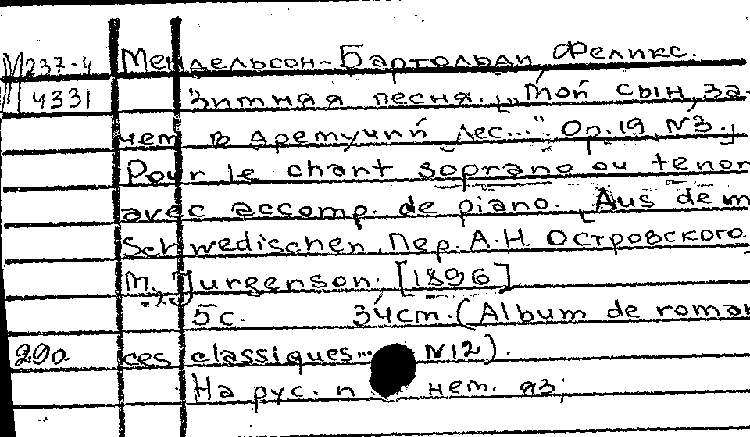 М237-4 Мендельсон-Бартольди, Феликс.
4331 Зимняя песня. „Мой сын, за-
чем в дремучий лес..." Op. 19 №3.]
Pour le chant soprano ou tenor
avec accomp. de piano. [Aus dem
Schwedischen. Пер. А.Н. Островского.
M. Jurgenson, [1896]
5с. 34cm. (Album de roman
290 ces classiques... N12).
На рус. и нем. яз.